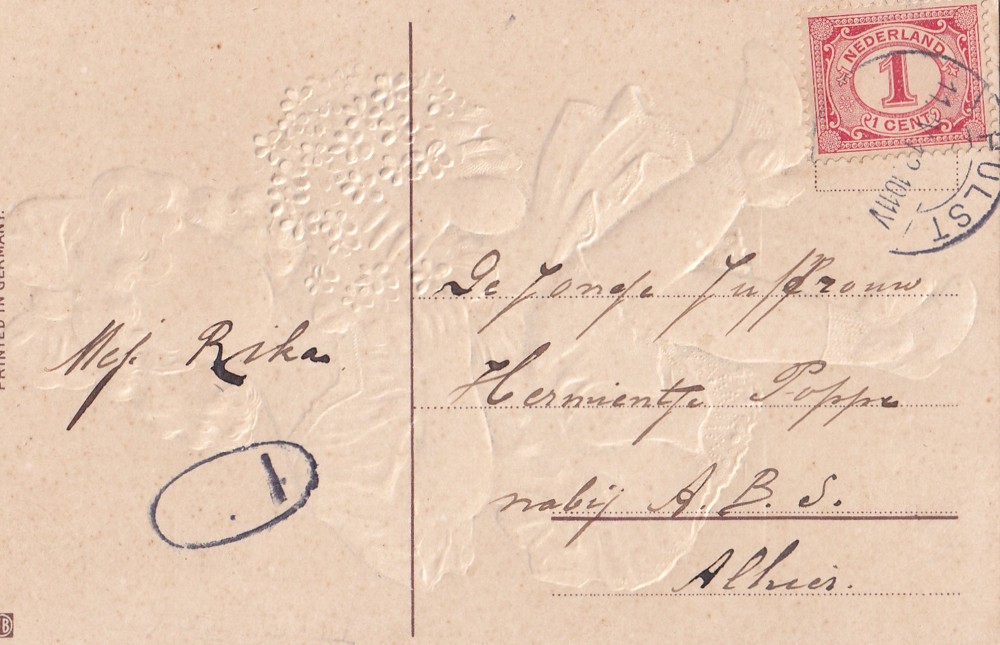 NEDERLAND
1
1 CENT
HULST
10-11V
De Jonge Juffrouw
Mej. Rika
Hermientje Poppe
nabij A. B. S.
Alhier.
1
PRINTED IN GERMANY.